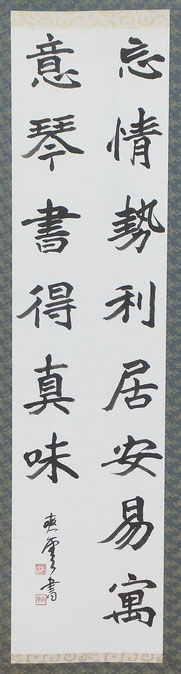 忘情勢利居安易寓
意琴書得真味
爽雲書